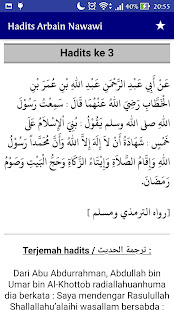 20:55
Hadits Arbain Nawawi
Hadits ke 3
عَنْ أَبِي عَبْدِ الرَّحْمَنِ عَبْدِ اللهِ بْنِ عُمَرَ بْنِ
الْخَطَّابِ رَضِيَ اللهُ عَنْهُمَا قَالَ : سَمِعْتُ رَسُوْلَ
اللهِ صلى الله وسلم يَقُوْلُ : بُنِيَ اْلإِسْلاَمُ عَلَى
خَمْسٍ : شَهَادَةُ أَنْ لاَ إِلَهَ إِلاَّ اللهُ وَأَنَّ مُحَمَّداً رَسُوْلُ
اللهِ وَإِقَامُ الصَّلاَةِ وَإِيْتَاءُ الزَّكَاةِ وَحَجُّ الْبَيْتِ وَصَوْمُ
رَمَضَانَ .
[رواه الترمذي ومسلم ]
Terjemah hadits / ترجمة الحديث :
Dari Abu Abdurrahman, Abdullah bin
Umar bin Al-Khottob radiallahuanhuma
dia berkata : Saya mendengar Rasulullah
Shallallahu'alaihi wasallam bersabda :